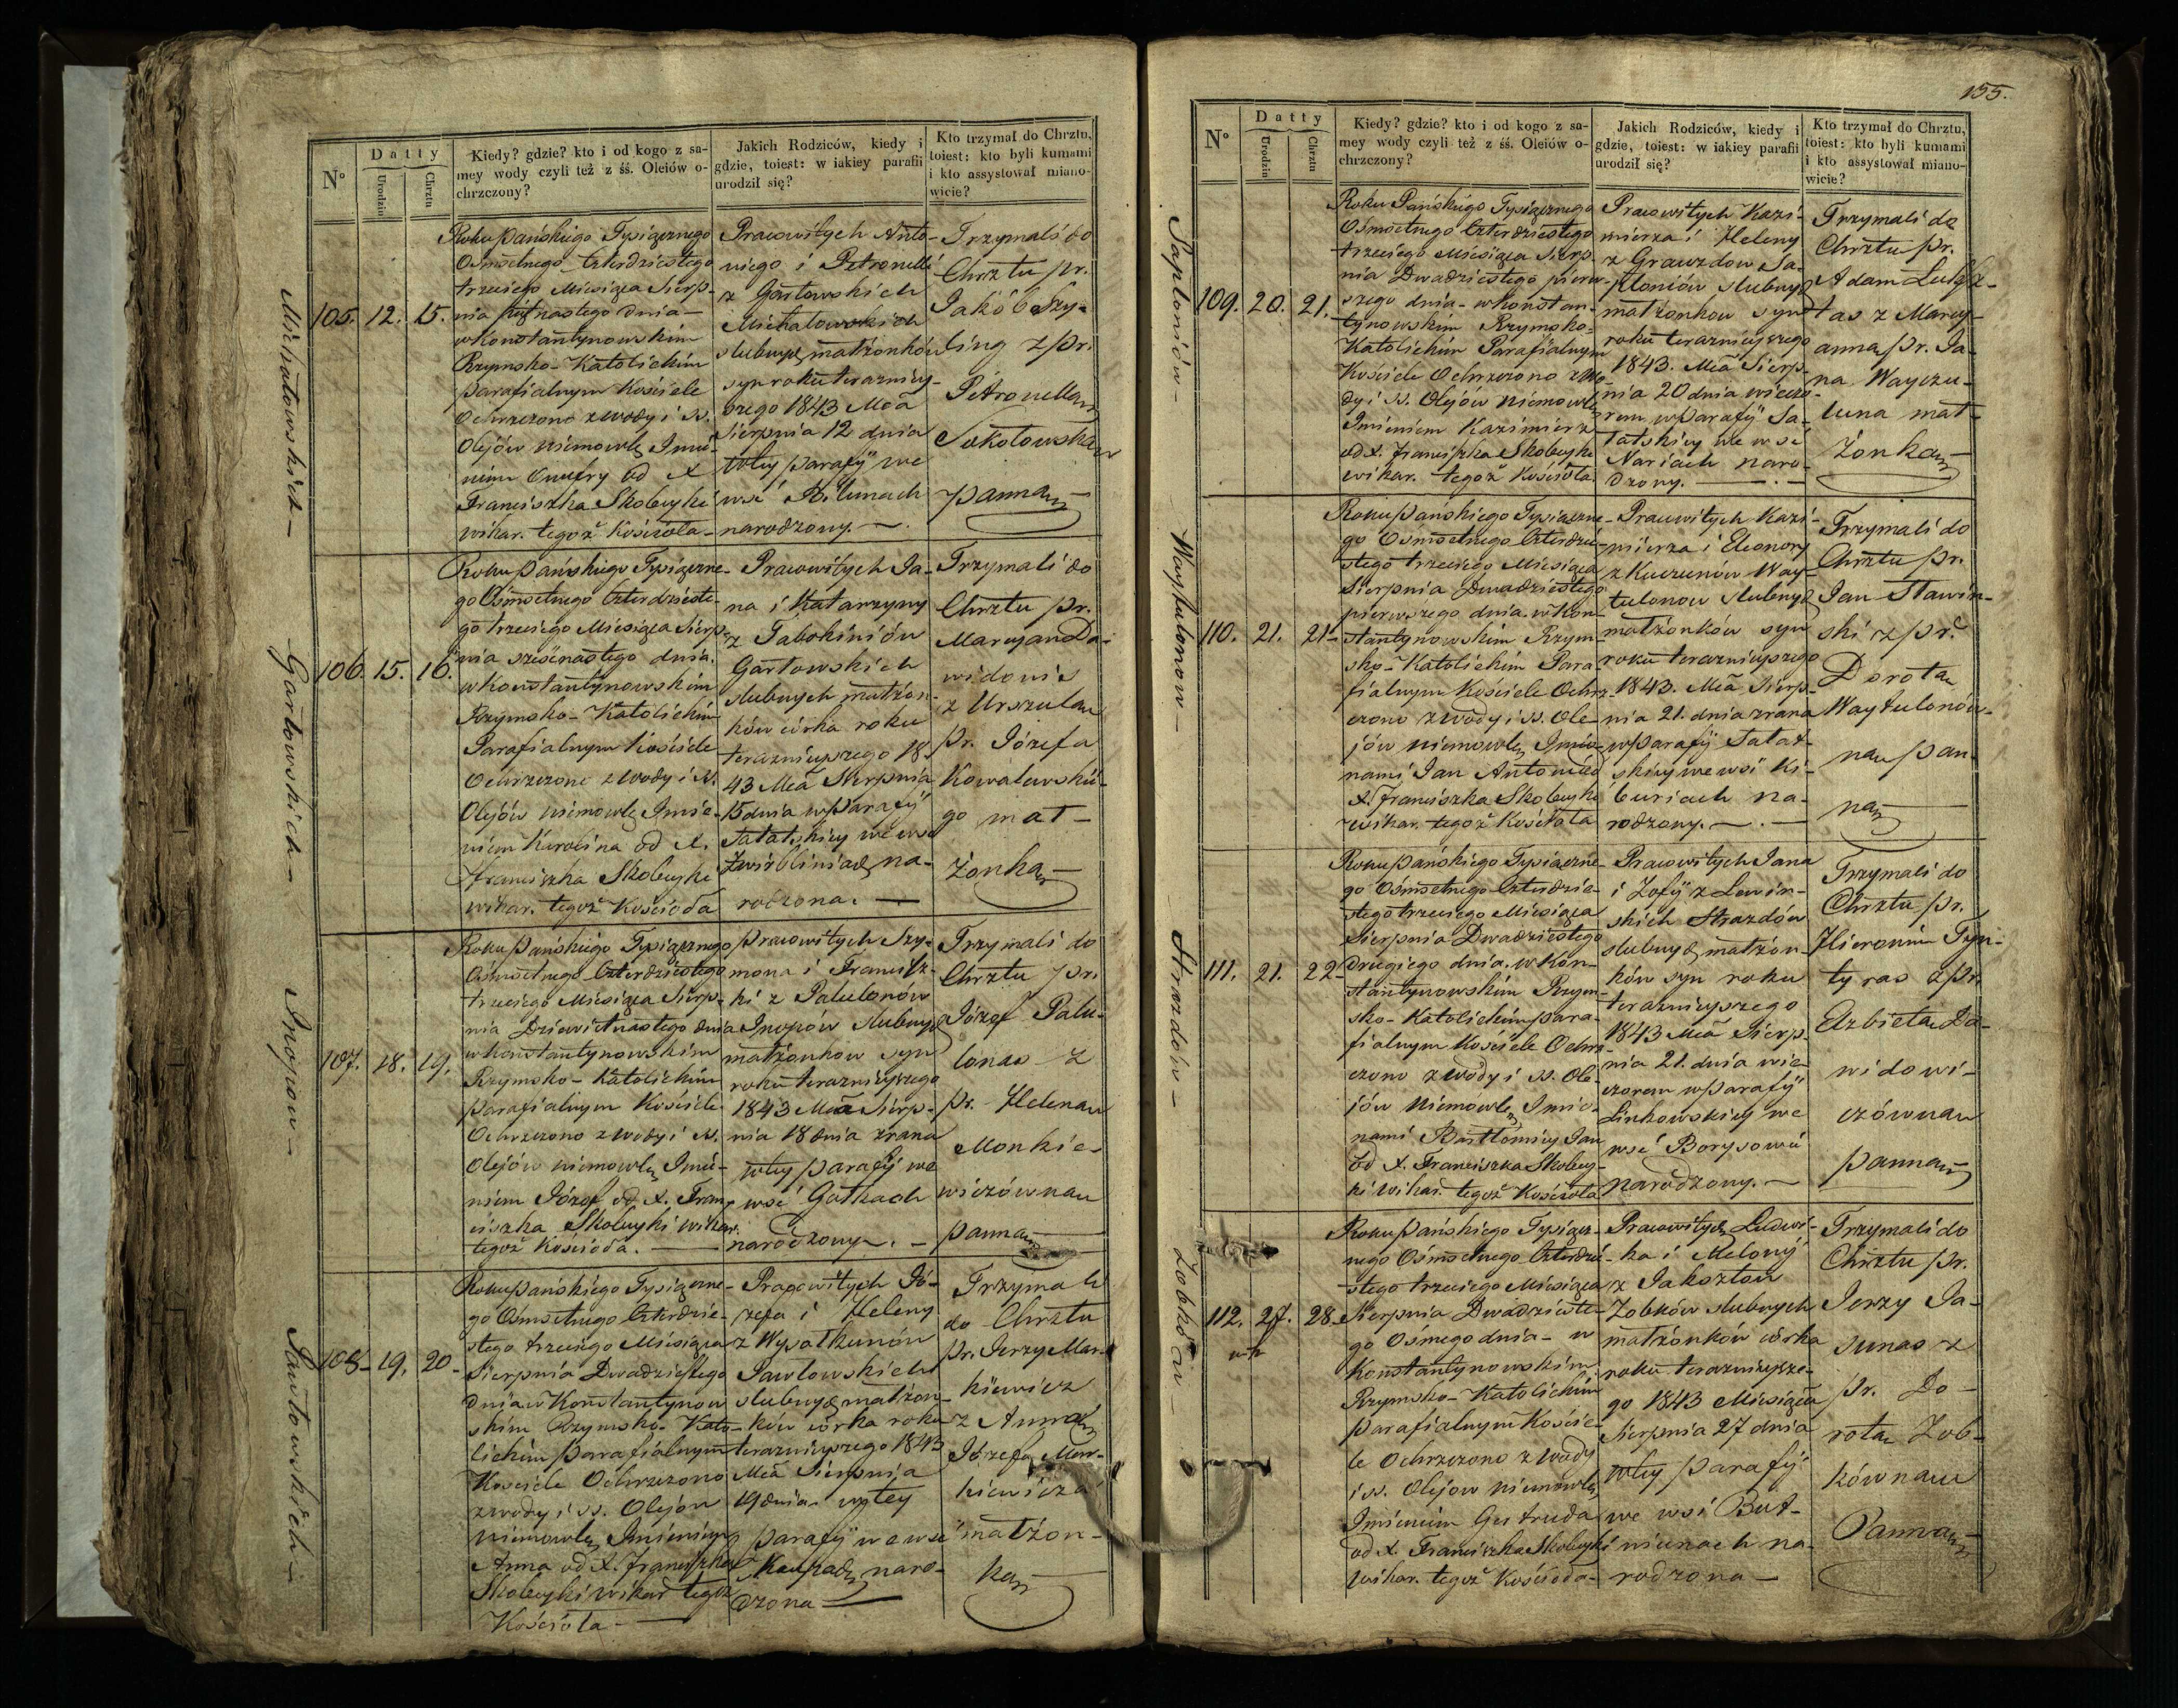 N°
Datty
Urodzin
Chrztu
Kiedy? gdzie? kto i od kogo z sa-
mey wody czyli też z śś. Oleiów o-
chrzczony?
Jakich Rodziców, kiedy i
gdzie, toiest: w iakiey parafii
urodził się?
Kto trzymał do Chrztu,
toiest: kto byli kumami
i kto assystował miano-
wicie?
Michałowskich
105. 12. 15.
Roku Pańskiego Tysiącznego
Ośmsetnego Czterdziestego
trzeciego Miesiąca Sierp-
nia piętnastego dnia
w Konstantynowskim
Rzymsko-Katolickim
Parafialnym Kościele
Ochrzczono z wody i SS.
Olejów niemowlę Imie-
niem Onufry od X
Franciszka Skobeyki
wikar. tegoż Kościoła
Pracowitych Anto-
niego i Petronelli
z Gartowskich
Michałowskich
slubnych małżonków
syn roku terazniey-
szego 1843 Mca
Sierpnia 12 dnia
w tey parafij we
wsi Bilunach
narodzony.
Trzymali do
Chrztu pr.
Jakób Szy-
ling z pr.
Petronellą
Sokołowską
panną
Gartowskich
106. 15. 16.
Roku Pańskiego Tysiączne-
go Ośmsetnego Czterdzieste-
go trzeciego Miesiąca Sierp-
nia szesnastego dnia.
w Konstantynowskim
Rzymsko-Katolickim
Parafialnym Kościele
Ochrzczono z wody i SS.
Olejów niemowlę Imie-
niem Karolina od X.
Franciszka Skobeyki
wikar. tegoż Kościoła
Pracowitych Ja-
na i Katarzyny
z
Gartowskich
slubnych małżon-
ków córka roku
teraznieyszego 18
43 Mca Sierpnia
15 dnia w Parafij
Tatarskiey we wsi
na-
rodzona.
Trzymali do
Chrztu pr.
Maryan Da-
widonis
z Urszulą
pr. Józefa
Kowalewskie-
go mał-
żonką
107. 18. 19.
Roku Pańskiego Tysiącznego
Ośmsetnego Czterdziestego
trzeciego Miesiąca Sierp-
nia Dziewiętnastego dnia
w Konstantynowskim
Rzymsko-Katolickim
Parafialnym Kościele
Ochrzczono z wody i SS.
Olejów niemowlę Imie-
niem Józef od X. Fran-
ciszka Skobeyki wikar.
tegoż Kościoła.
Pracowitych Szy-
mona i Francisz-
ki z Palulonów
slubnych
małżonkow syn
roku teraznieyszego
1843 Mca Sierp-
nia 18 dnia zrana
w tey parafij we
wsi Gołkach
narodzony.
Trzymali do
Chrztu pr.
Józef Palu-
lonas z
pr. Heleną
Monkie-
wiczówną
panną
Pawłowskich
108. 19. 20.
Roku Pańskiego Tysiączne-
go Ośmsetnego Czterdzie-
stego trzeciego Miesiąca
Sierpnia Dwadziestego
dnia w Konstantynow-
skim Rzymsko-Kato-
lickim parafialnym
Kościele Ochrzczono
z wody i SS. Olejow
niemowlę Imieniem
Anna od X. Franciszka
Skobeyki wikar. tegoż
Kościoła
Pracowitych Jó-
zefa i Heleny
z Wysotkunów
Pawłowskich
slubnych małżon-
ków córka roku
teraznieyszego 1843
Mca Sierpnia
19 dnia w tey
parafij we wsi
naro-
dzona
Trzymali
do Chrztu
pr. Jerzy Mar-
kiewicz
z Anną
Józefa Mar-
kiewicza
małżon-
ką
155.
N°
Datty
Urodzin
Chrztu
Kiedy? gdzie? kto i od kogo z sa-
mey wody czyli też z śś. Oleiów o-
chrzczony?
Jakich Rodziców, kiedy i
gdzie, toiest: w iakiey parafii
urodził się?
Kto trzymał do Chrztu,
toiest: kto byli kumami
i kto assystował miano-
wicie?
Saploniów
109. 20. 21.
Roku Pańskiego Tysiącznego
Ośmsetnego Czterdziestego
trzeciego Miesiąca Sierp-
nia Dwadziestego pierw-
szego dnia w Konstan-
tynowskim Rzymsko-
Katolickim Parafialnym
Kościele Ochrzczono z wo-
dy i SS. Olejów niemowlę
Imieniem Kazimierz
od X. Franciszka Skobeyki
wikar. tegoż Kościoła.
Pracowitych Kazi-
mierza i Heleny
z Grawzdow Sa-
ploniów slubnych
małżonkow syn
roku teraznieyszego
1843. Mca Sierp-
nia 20 dnia wieczo-
rem w Parafij Ła-
Tatskiey we wsi
Nariach naro-
dzony.
Trzymali do
Chrztu pr.
Adam
z Mary-
anną pr. Ja-
na
mał-
żonką
Waytulonow
110. 21. 21.
Roku Pańskiego Tysiączne-
go Ośmsetnego Czterdzie-
stego trzeciego Miesiąca
Sierpnia Dwadziestego
pierwszego dnia w Kon-
stantynowskim Rzym-
sko-Katolickim Para-
fialnym Kościele Ochrz-
czono z wody i SS. Ole-
jów niemowlę Imio-
nami Jan Antoni od
X. Franciszka Skobeyki
wikar. tegoż Kościoła
Pracowitych Kazi-
mierza i Eleonory
z Kuczunów Way-
tulonow slubnych
małżonków syn
roku teraznieyszego
1843. Mca Sierp-
nia 21. dnia zrana
w Parafij Tatar-
skiey we wsi Ki-
buriach na-
rodzony.
Trzymali do
Chrztu pr.
Jan Sławin-
ski z pr.
Dorotą
Waytulonów-
ną pan-
ną
Strazdów
111. 21. 22.
Roku Pańskiego Tysiączne-
go Ośmsetnego Czterdzie-
stego trzeciego Miesiąca
Sierpnia Dwadziestego
drugiego dnia. w Kon-
stantynowskim Rzym-
sko-Katolickim para-
fialnym Kościele Ochrz-
czono z wody i SS. Ole-
jów Niemowlę Imio-
nami Bartłomiey Jan
od X. Franciszka Skobey-
ki wikar. tegoż Kościoła
Pracowitych Jana
i Zofij z Lewin-
skich Strazdów
slubnych małżon-
ków syn roku
teraznieyszego
1843 Mca Sierp-
nia 21. dnia wie-
czorem w Parafij
Linkowskiey we
wsi Borysowie
narodzony.
Trzymali do
Chrztu pr.
Hieronim Tyn-
tyras z pr.
Elzbietą Da-
widowi-
czówną
panną
Zobków
112. 27. 28.
Roku Pańskiego Tysiącz-
nego Ośmsetnego Czterdzie-
stego trzeciego Miesiąca
Sierpnia Dwadzieste-
go Osmego dnia w
Konstantynowskim
Rzymsko-Katolickim
Parafialnym Koscie-
le Ochrzczono z wody
i SS. Olejow niemowlę
Imieniem Gertruda
od X. Franciszka Skobeyki
wikar. tegoż Kościoła
Pracowitych Ludwi-
ka i Melony
z Jaksztow
Zobków slubnych
małżonków córka
roku teraznieysze-
go 1843 Miesiąca
Sierpnia 27 dnia
w tey parafij
we wsi But-
niunach na-
rodzona
Trzymali do
Chrztu pr.
Jerzy Ja-
sunas z
pr. Do-
rotą Zob-
kówną
Panną